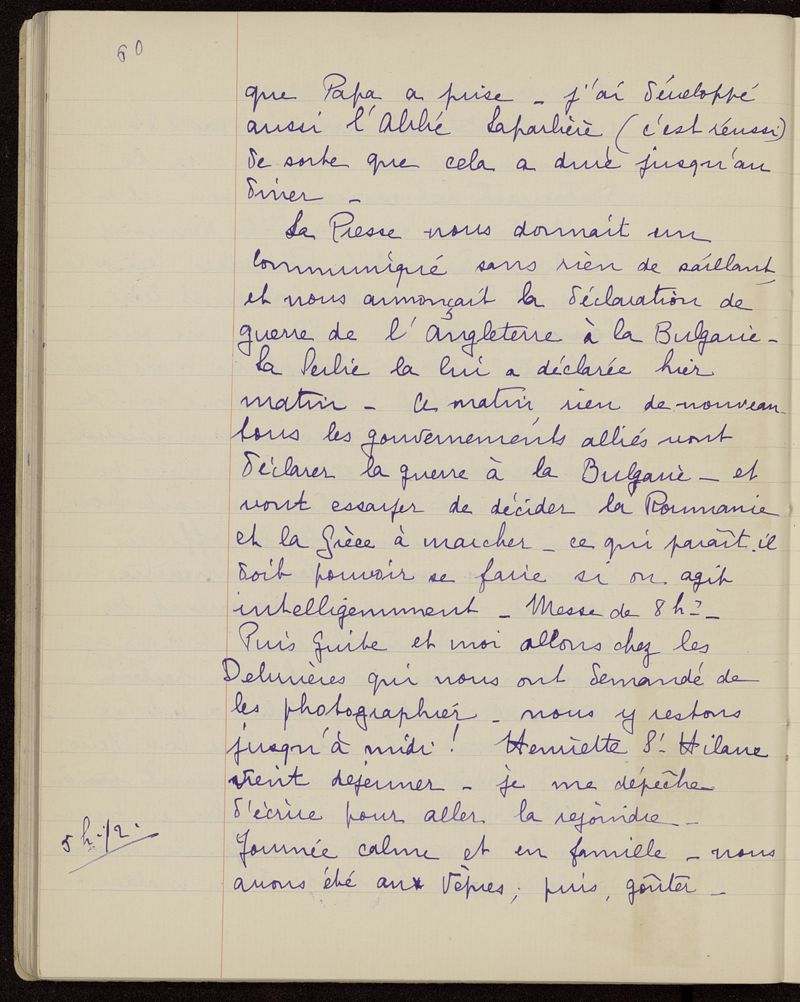 60
que Papa a prise _ j'ai développé
aussi l'Abbé Laparlière (c'est réussi)
de sorte que cela a duré jusqu'au
dîner _
La Presse nous donnait un
communiqué sans rien de saillant
et nous annonçait la déclaration de
guerre de l'Angleterre à la Bulgarie _
La Serbie la lui a déclarée hier
matin _ Ce matin, rien de nouveau_
tous les gouvernements alliés vont
déclarer la guerre à la Bulgarie _ et
vont essayer de décider la Roumanie
et la Grèce à marcher _ ce qui paraît-il
doit pouvoir se faire si on agit
intelligemment _ Messe de 8h _
Puis Guite et moi allons chez les
qui nous ont demandé de
les photographier _ nous y restons
jusqu'à midi ! Henriette St Hilaire
vient déjeuner _ je me dépêche
d'écrire pour aller la rejoindre _
5 h. 1/2.
Journée calme et en famille _ nous
avons été aux Vêpres ; puis, goûter _